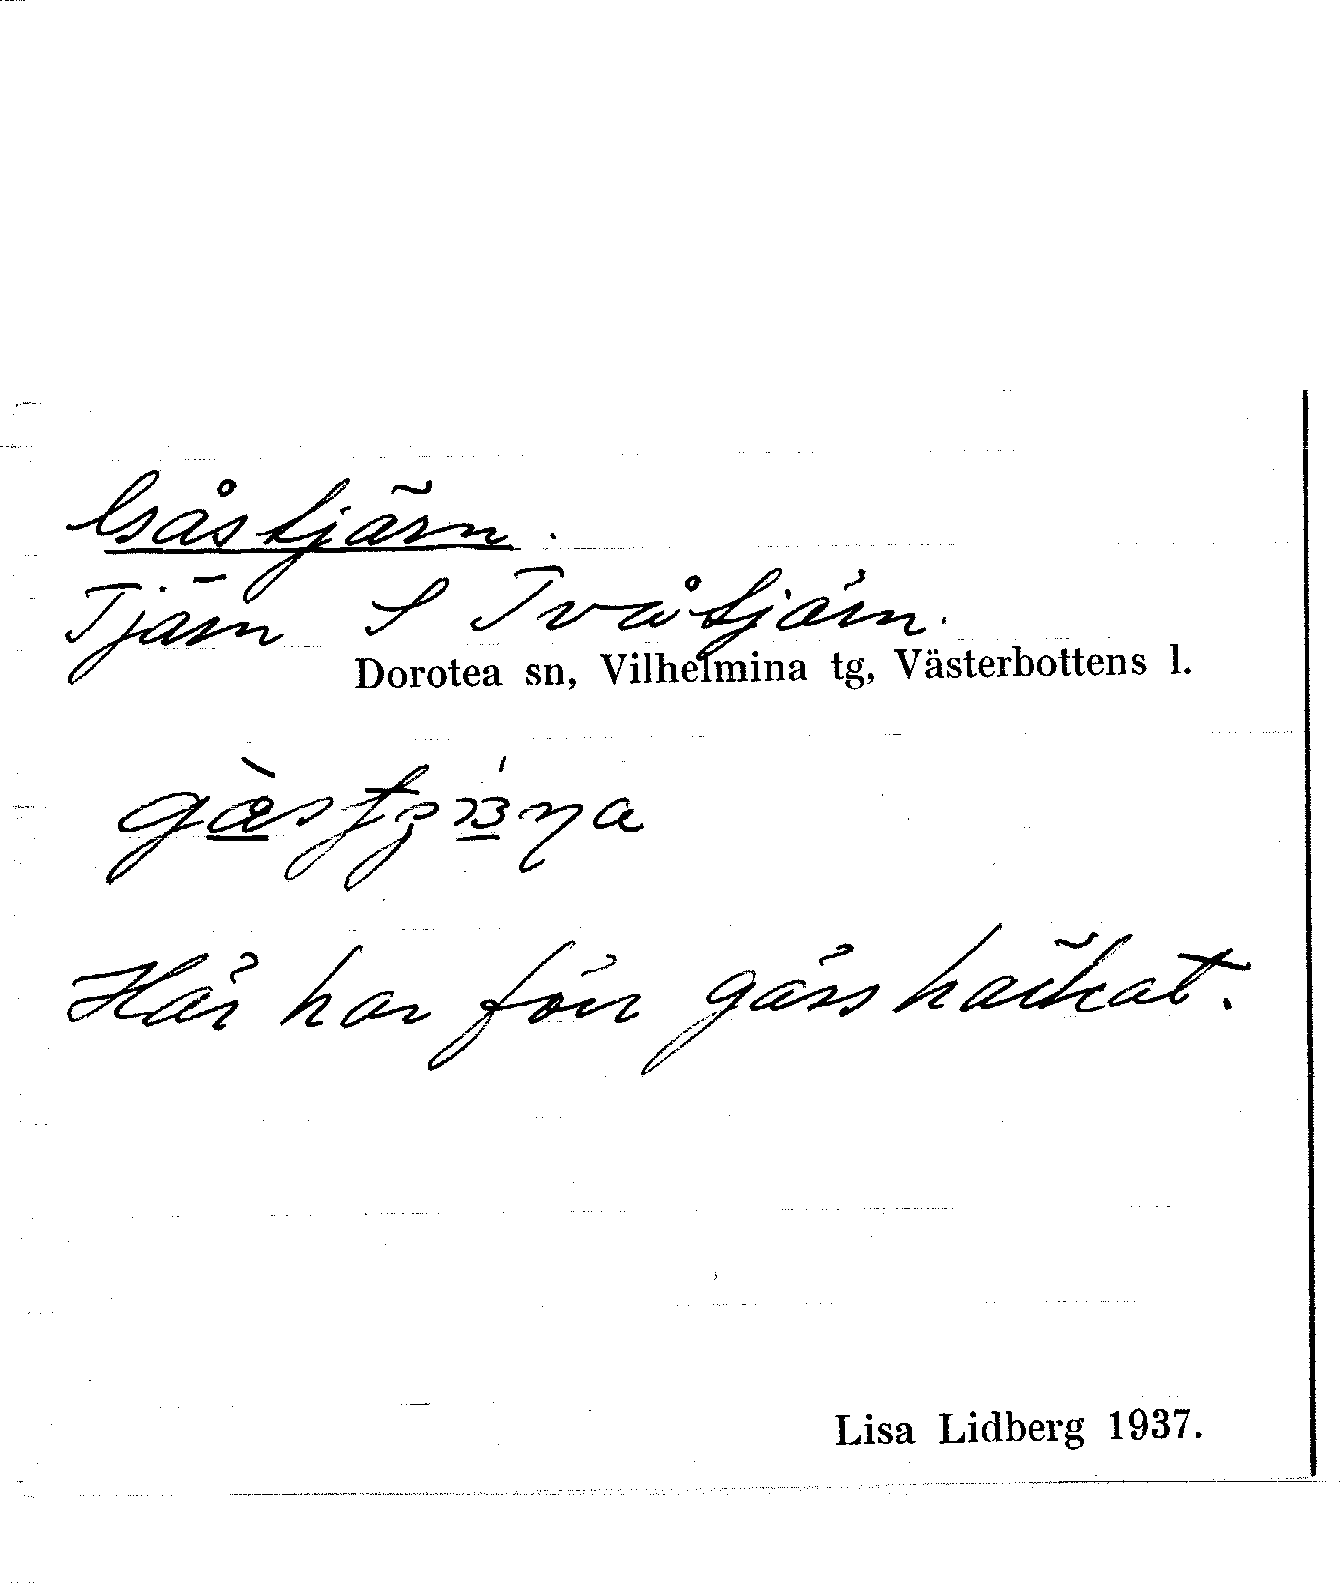 Gåstjärn.
Tjärn S Tvåtjärn.
Dorotea sn, Vilhelmina tg, Västerbottens l.
Här har förr gäss häckat.
Lisa Lidberg 1937.